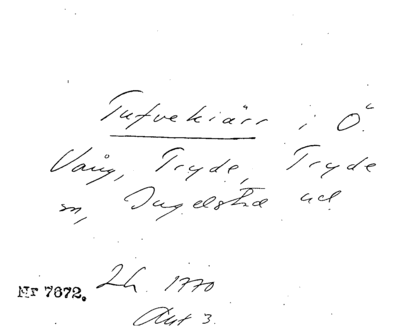 Tufvekiärr i Ö.
Vång, Tryde, Tryde
sn, Ingelstad
Nr 7672. Lh. 1770
Akt 3.